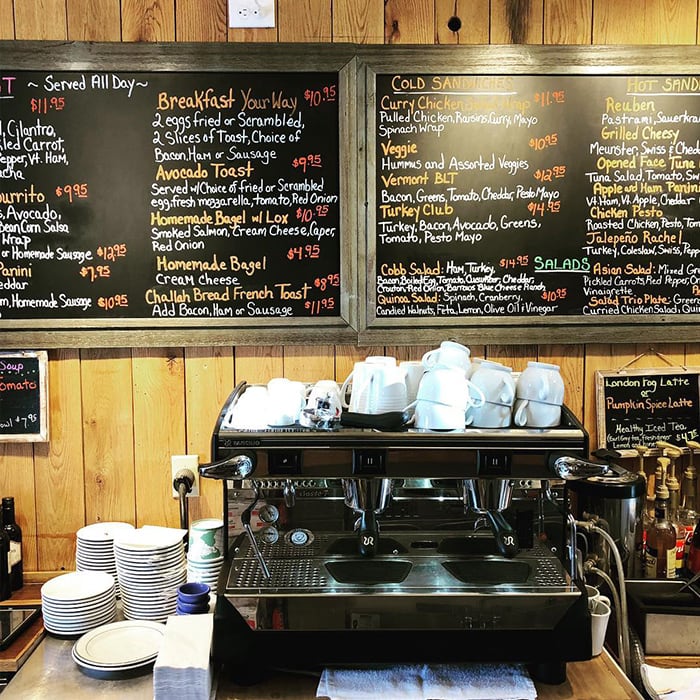 ST ~ Served All Day ~
$11.95
, Cilantro,
kled Carrot,
Pepper, Vt. Ham,
acha
urrito $9.95
s, Avocado,
Bean Corn Salsa
Wrap
or Homemade Sausage $12.95
Panini $7.95
eddar
m, Homemade Sausage $10.95
Breakfast Your Way $10.95
2 eggs fried or Scrambled,
2 Slices of Toast, Choice of
Bacon, Ham or Sausage
Avocado Toast $9.95
Served w/Choice of fried or Scrambled
egg, fresh mozzarella, tomato, Red Onion
Homemade Bagel w/ Lox $10.95
Smoked Salmon, Cream Cheese, Caper,
Red Onion
Homemade Bagel $4.95
Cream Cheese
Challah Bread French Toast $8.95
Add Bacon, Ham or Sausage $11.95
COLD SANDWICHES
Curry Chicken Salad Wrap $11.95
Pulled Chicken, Raisins, Curry, Mayo
Spinach Wrap
Veggie $10.95
Hummus and Assorted Veggies
Vermont BLT $12.95
Bacon, Greens, Tomato, Cheddar, Pesto Mayo
Turkey Club $14.95
Turkey, Bacon, Avocado, Greens,
Tomato, Pesto Mayo
HOT SAND
Reuben
Pastrami, Sauerkrau
Grilled Cheesy
Meunster, Swiss & Chedd
Opened Face Tuna
Tuna Salad, Tomato, Sw
Apple and Ham Panini
Vt. Ham, Vt. Apple, Cheddar
Chicken Pesto
Roasted Chicken, Pesto, Tom
Jalapeño Rachel
Turkey, Coleslaw, Swiss, Pepp
SALADS
Cobb Salad: Ham, Turkey, $14.95
Bacon, Boiled Egg, Tomato, Cucumber, Cheddar,
Crouton, Red Onion, Barrows Blue Cheese Ranch
Quinoa Salad: Spinach, Cranberry, $10.95
Candied Walnuts, Feta, Lemon, Olive Oil & Vinegar
Asian Salad: Mixed Gr
Pickled Carrots, Red Pepper, On
Vinaigrette
Salad Trio Plate: Gree
Curried Chicken Salad, Quin
Soup
Tomato
owl $7.95
London Fog Latte
or
Pumpkin Spice Latte
Healthy Iced Tea
$4.75
RANCILIO